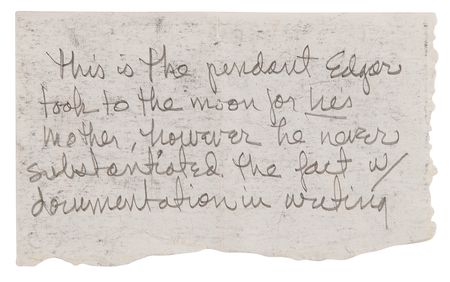 This is the pendant Edgar
took to the moon for his
mother, however he never
substantiated the fact w/
documentation in writing